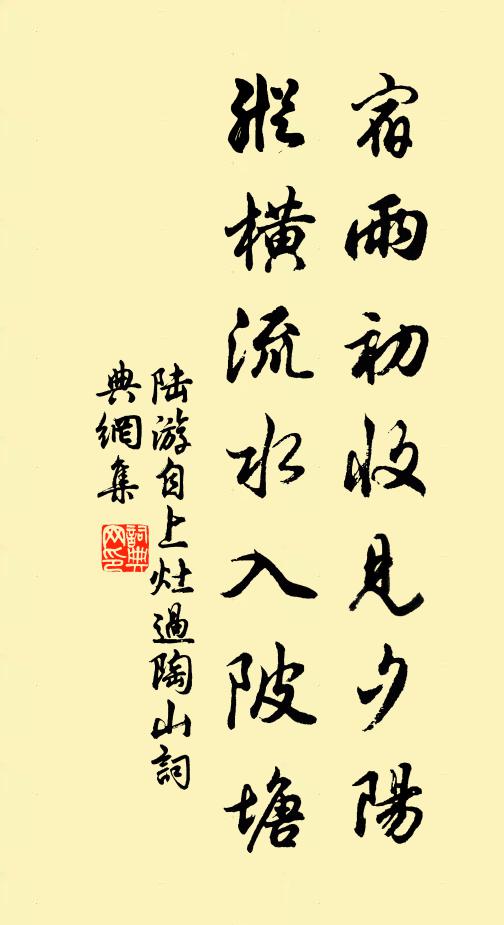 宿雨初收見夕陽
縱橫流水入陂塘
陆游自上灶過陶山詞
典網集
詞典
网印